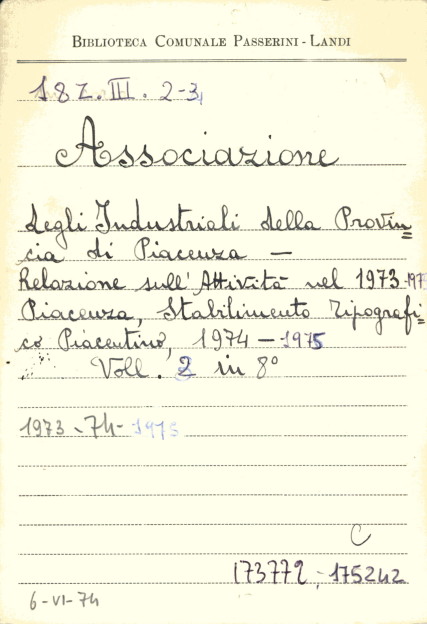 BIBLIOTECA COMUNALE PASSERINI - LANDI
18Z.III. 2-3
Associazione
degli Industriali della Provin=
cia di Piacenza —
Relazione sull'Attività nel 1973-197
Piacenza, Stabilimento Tipografi=
co Piacentino, 1974 - 1975
Voll. 2 in 8°
1973-74-1975
C
173772; 175242
6-VI-74